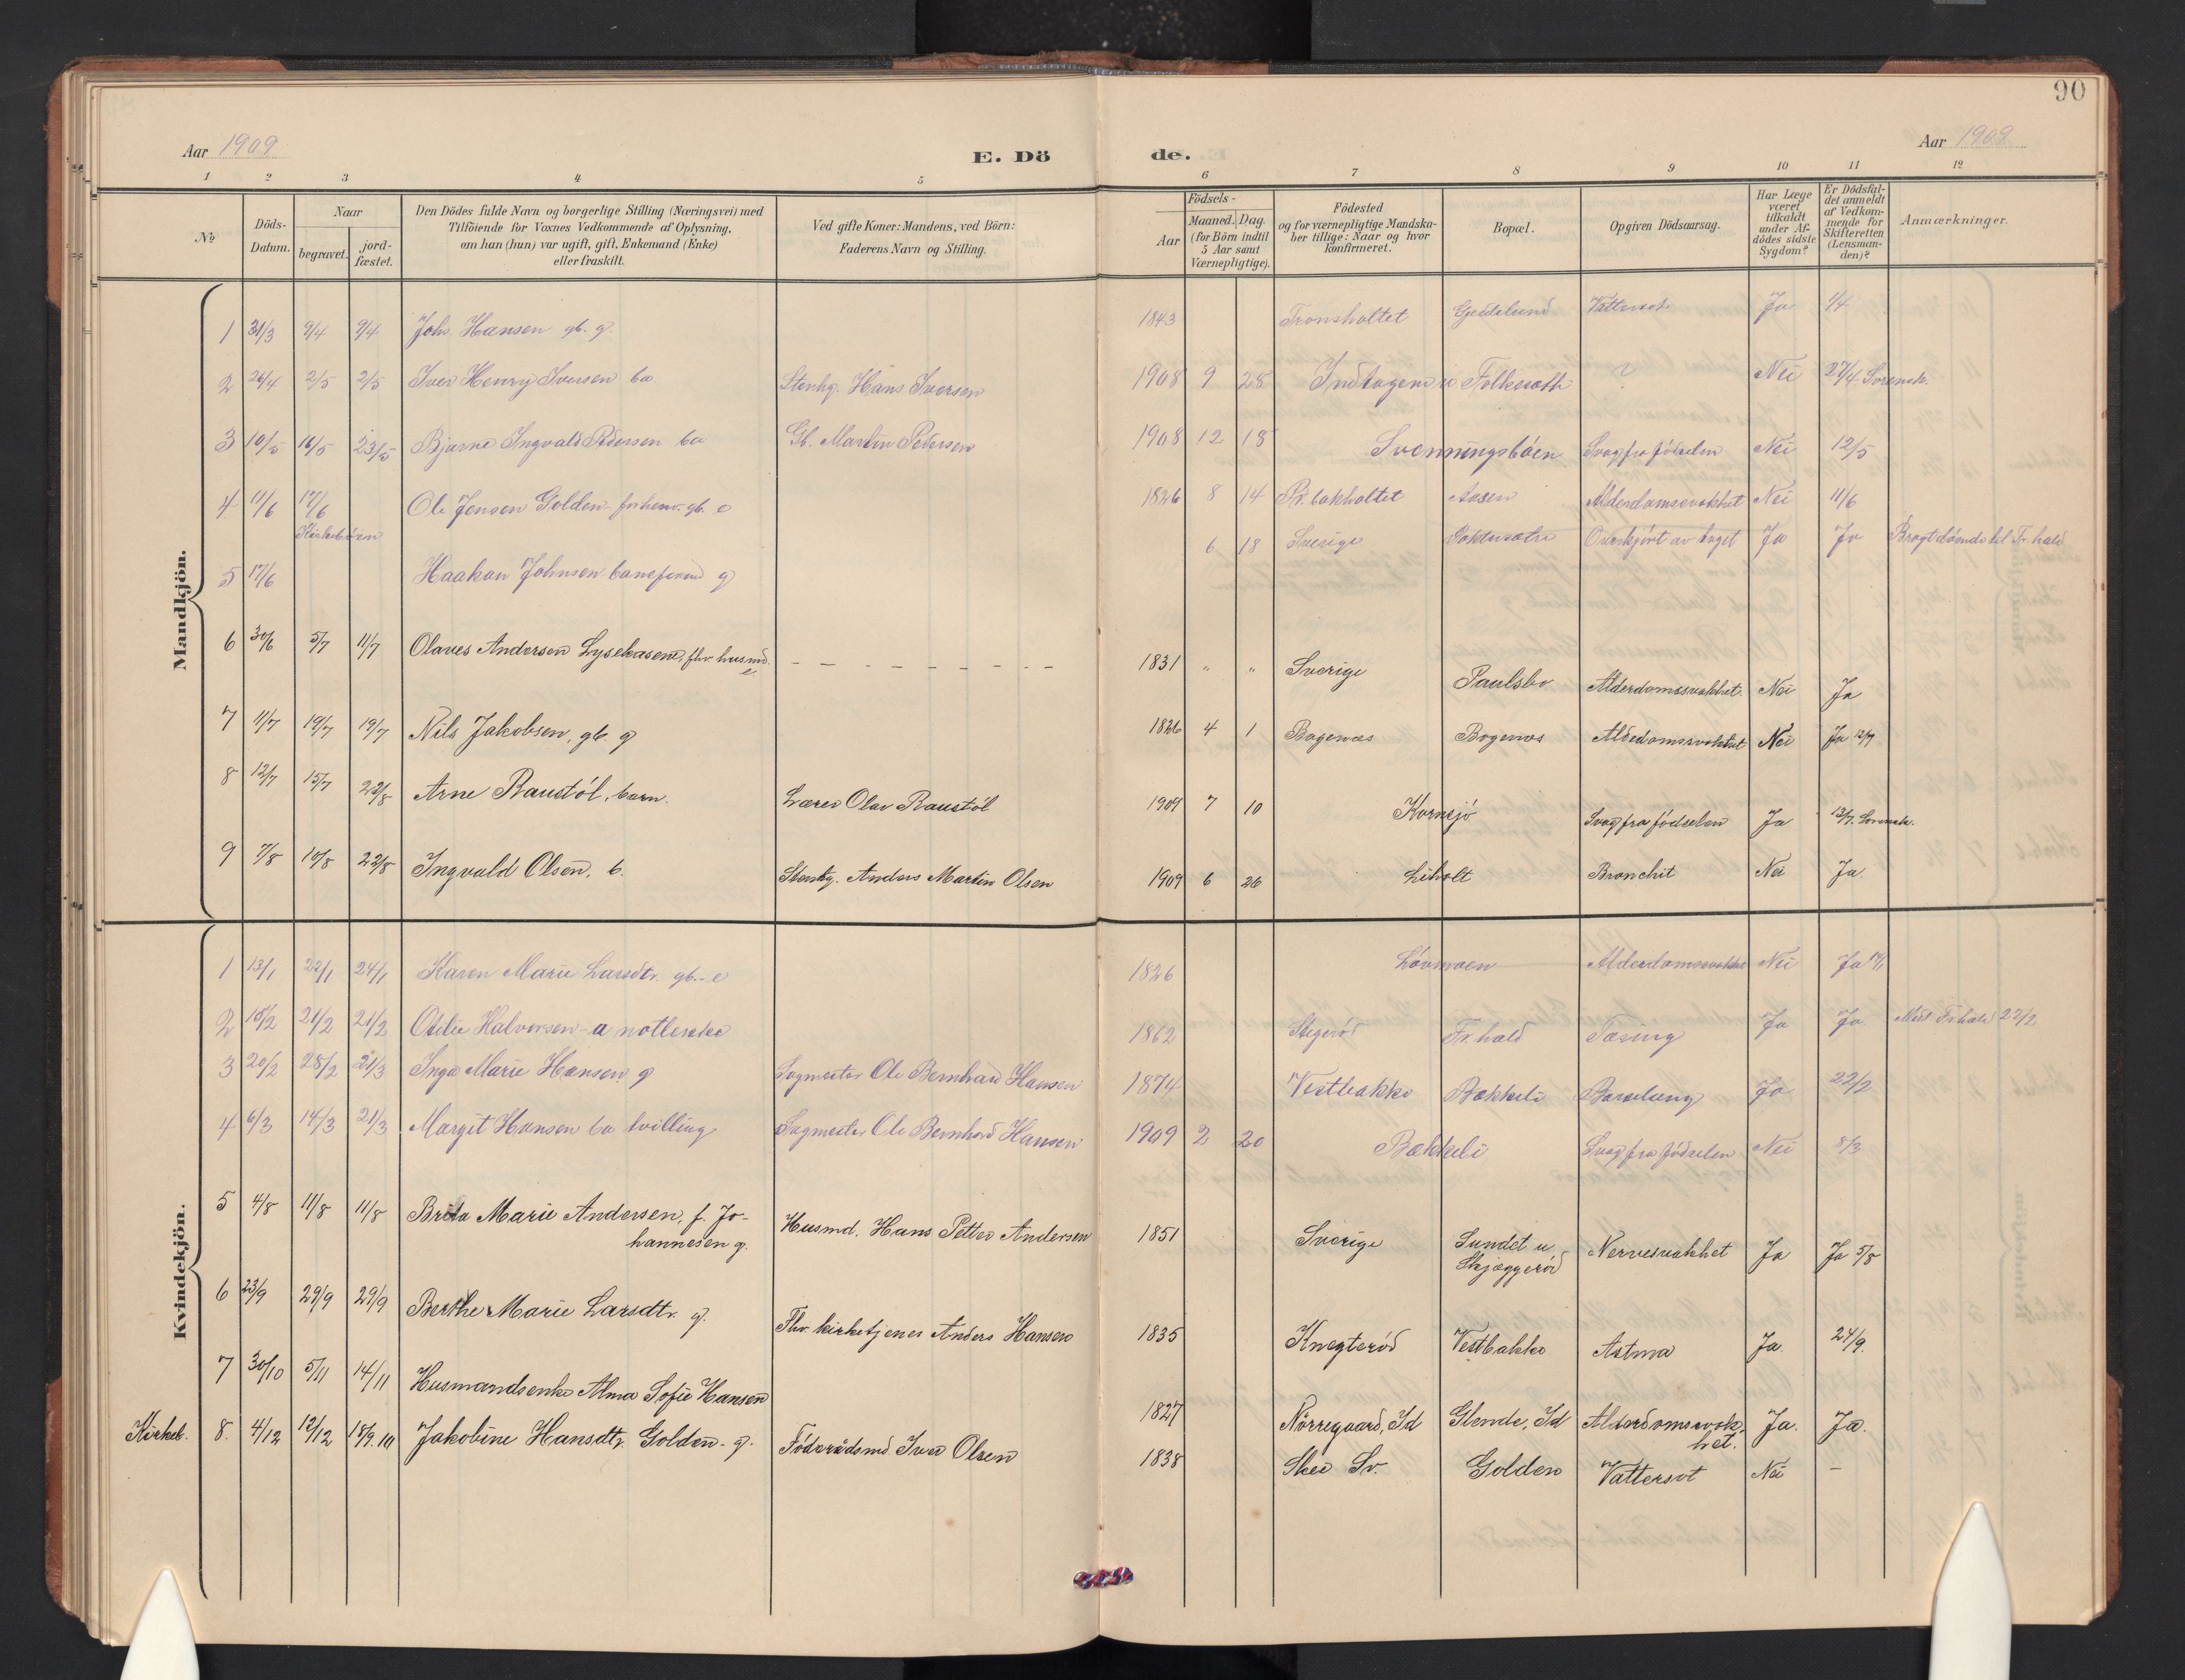 90
Aar 1909
E. Dö
de.
Aar 1909
1 2 3 4 5 6 7 8 9 10 11 12
No
Döds-Datum.
Naar
begravet.
jord-fæstet.
Den Dödes fulde Navn og borgerlige Stilling (Næringsvei) med
Tilföiende for Voxnes Vedkommende af Oplysning,
om han (hun) var ugift, gift, Enkemand (Enke)
eller fraskilt.
Ved gifte Koner: Mandens, ved Börn:
Faderens Navn og Stilling.
Födsels-
Aar
Maaned. Dag.
(for Börn indtil
5 Aar samt
Værnepligtige).
Födested
og for værnepligtige Mandska-
ber tillige: Naar og hvor
konfirmeret.
Bopæl.
Opgiven Dödsaarsag.
Har Læge
været
tilkaldt
under Af-
dödes sidste
Sygdom?
Er Dödsfal-
det anmeldt
af Vedkom-
mende for
Skifteretten
(Lensman-
den)?
Anmærkninger.
Mandkjön.
1 31/3 9/4 9/4 Joh. Hansen gb. g. 1843 Tronsholtet Gjeddelund Vattersot Ja 1/4
2 26/4 2/5 2/5 Iver Henry Iversen ba Stenhg. Hans Iversen 1908 9 28 Indtagen u Folkesæth ? Nei 27/4 Svensk.
3 10/5 16/5 23/5 Bjarne Ingvald Pedersen ba Gb. Martin Pedersen 1908 12 18 Svenningsböen Svag fra födselen Nei 12/5
4 11/6 17/6 Ole Jensen Golden forhenv. gb. e 1826 8 14 Pr.bakholtet Aasen Alderdomssvakhet Nei 11/6
Kirkebøen
5 17/6 Haakan Johnsen baneform g 6 18 Sverige Overkjørt av toget Ja Ja Bragt til Fr.hald
6 30/6 5/7 11/7 Olaves Andersen Lysekasene, fhv. husmd. e 1831 " " Sverige Paulsbo Alderdomssvakhet. Nei Ja
7 11/7 19/7 19/7 Nils Jakobsen, gb. g 1826 4 1 Bogenæs Bogenæs Alderdomssvakhet Nei Ja 12/7
8 12/7 15/7 22/8 Arne Raustöl, barn. Lærer Olav Raustöl 1909 7 10 Kornsjö Svag fra födselen Ja 13/7. Svensk.
9 7/8 10/8 22/8 Ingvald Olsen, b. Stenhg. Anders Martin Olsen 1909 6 26 Liholt Bronchit Nei Ja.
Kvindekjön.
1 13/1 22/1 24/1 Karen Marie Larsdtr. gb.-e 1826 Lövmoen Alderdomssvakhet Nei Ja
2 18/2 21/2 21/2 Otilie Halvorsen 1862 Stegeröd Fr.hald Tæring Ja Ja Meldt Fr.hald 22/2
3 20/2 28/2 21/3 Inga Marie Hansen g Sagmester Ole Bernhard Hansen 1874 Vestbakke Bækkeli Barselseng Ja 22/2
4 6/3 14/3 21/3 Margit Hansen ba tvilling Sagmester Ole Bernhard Hansen 1909 2 20 Bækkeli Svag fra födselen Nei 8/3
5 4/8 11/8 11/8 Brita Marie Andersen, f. Jo-
hannesen g. Husmd. Hans Petter Andersen 1851 Sverige Sundet u.
Skjæggeröd Nervesvakhet Ja Ja 5/8
6 23/9 29/9 29/9 Berthe Marie Larsdtr. g. Fhv. kirketjener Anders Hansen 1835 Knegteröd Vestbakke Astma Ja. 24/9.
7 30/10 5/11 14/11 Husmandsenke Alma Sofie Hansen 1827 Nörregaard, Id Glende, Id Alderdomssvak-
het. Ja. Ja.
Kirkeb. 8. 4/12 12/12 18/9.10 Jakobine Hansdtr. Golden - g. Föderådsmd Iver Olsen 1838 Skee Sv. Golden Vattersot Nei –